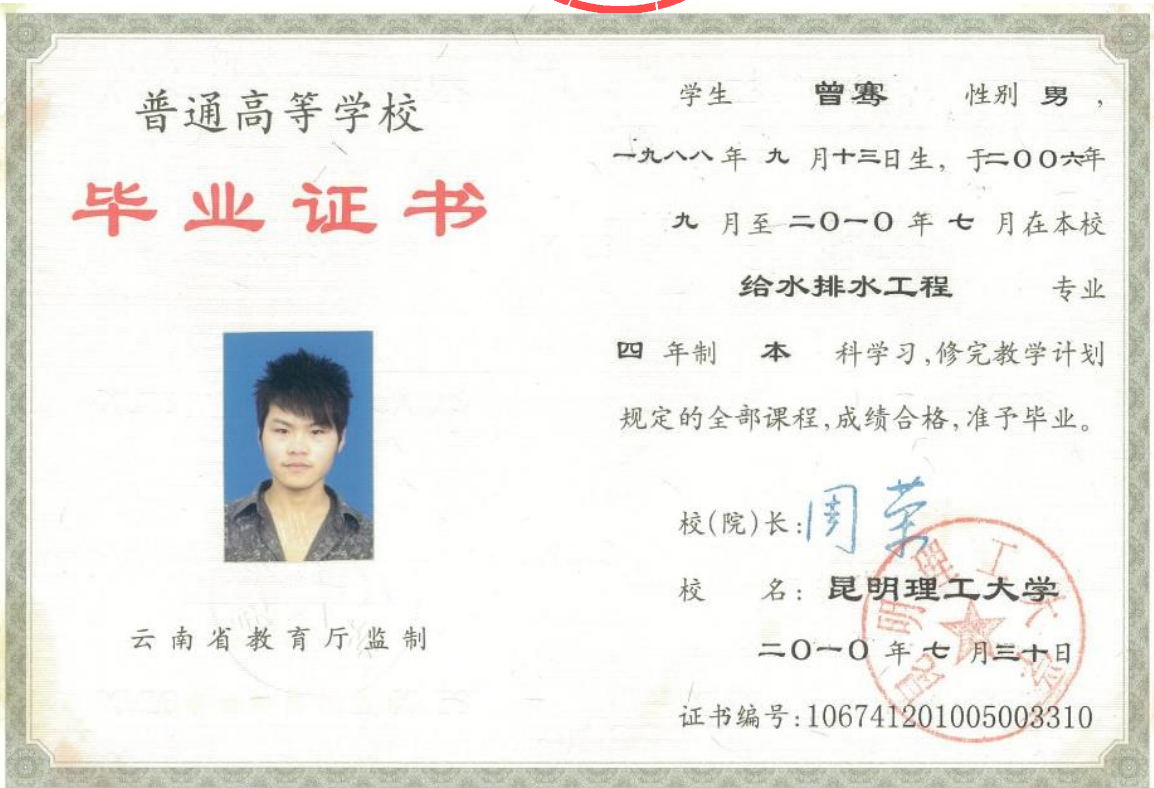 普通高等学校
毕业证书
云南省教育厅监制
学生 曾骞 性别 男，
一九八八年 九 月十三日生，于二〇〇六年
九 月至 二〇一〇 年 七 月在本校
给水排水工程 专业
四 年制 本 科学习，修完教学计划
规定的全部课程，成绩合格，准予毕业。
校(院)长：周荣
校 名：昆明理工大学
二〇一〇 年 七 月三十日
证书编号：106741201005003310
昆明理工大学